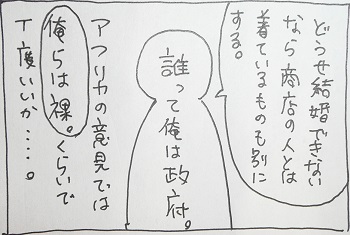 どうせ結婚できない
なら商店の人とは
着ているものも別に
する。
誰って俺は政府。
アフリカの意見では
俺らは裸。くらいで
丁度いいか・・・・。